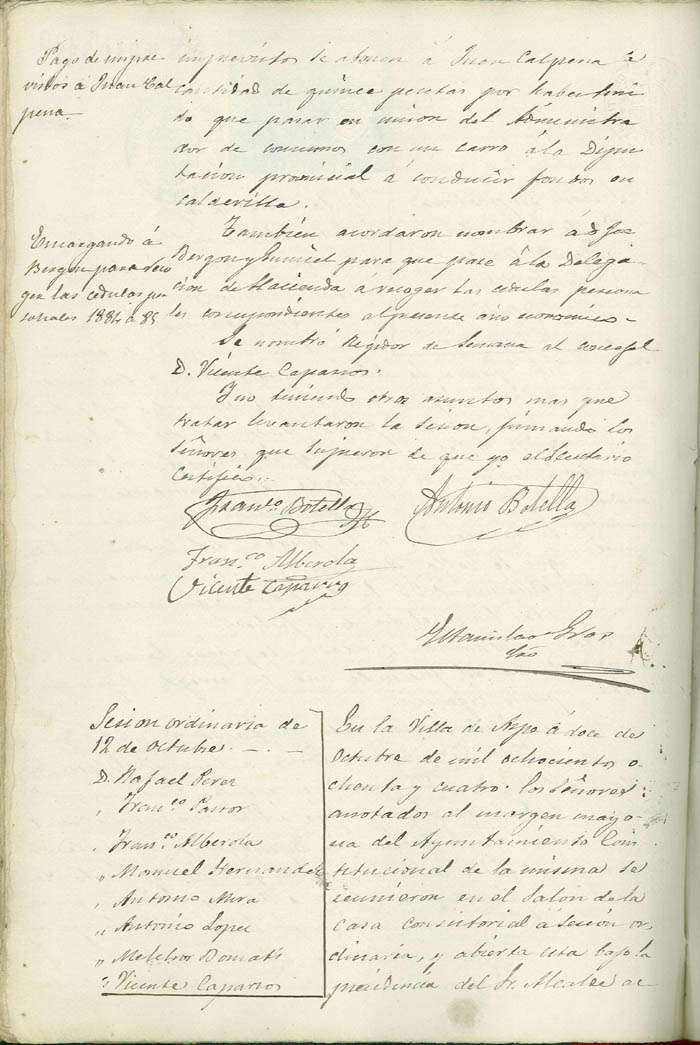 Pago de impre
vistos á Juan Cal
pena.
imprevistos se abonen á Juan Calpena la
cantidad de quince pesetas por haber teni
do que pasar en union del Administra
dor de consumos con un carro á la Dipu
tacion provincial á conducir fondos en
calderilla.
Encargando á
Bergon para reco
ger las cedulas per
sonales 1884 á 85
Tambien acordaron nombrar á D. José
Bergon y para que pase á la Delega
cion de Hacienda a recoger las cedulas persona
les correspondientes al presente año economico.-
Se nombró Regidor de Semana al concejal
D. Vicente Caparros.
Y no teniendo otros asuntos mas que
tratar levantaron la sesion, firmando los
Señores que supieron de que yo el Secretario
Certifico.-
Franco. Botella
Antonio Botella
Fran.co Alberola
Vicente Caparros
Estanislao
Srio
Sesion ordinaria de
12 de Octubre. - . -
D. Rafael Perez
" Fran.co Pastor
" Fran.co Alberola
" Manuel Hernandez
" Antonio Mira
" Antonio Lopez
" Melchor
" Vicente Caparros
En la Villa de Aspe á doce de
Octubre de mil ochocientos o
chenta y cuatro. Los Señores
anotados al margen mayo-
ria del Ayuntamiento Cons
titucional de la misma se
reunieron en el Salon de la
casa consistorial a sesion or
dinaria, y abierta esta bajo la
presidencia del Sr. Alcalde ac